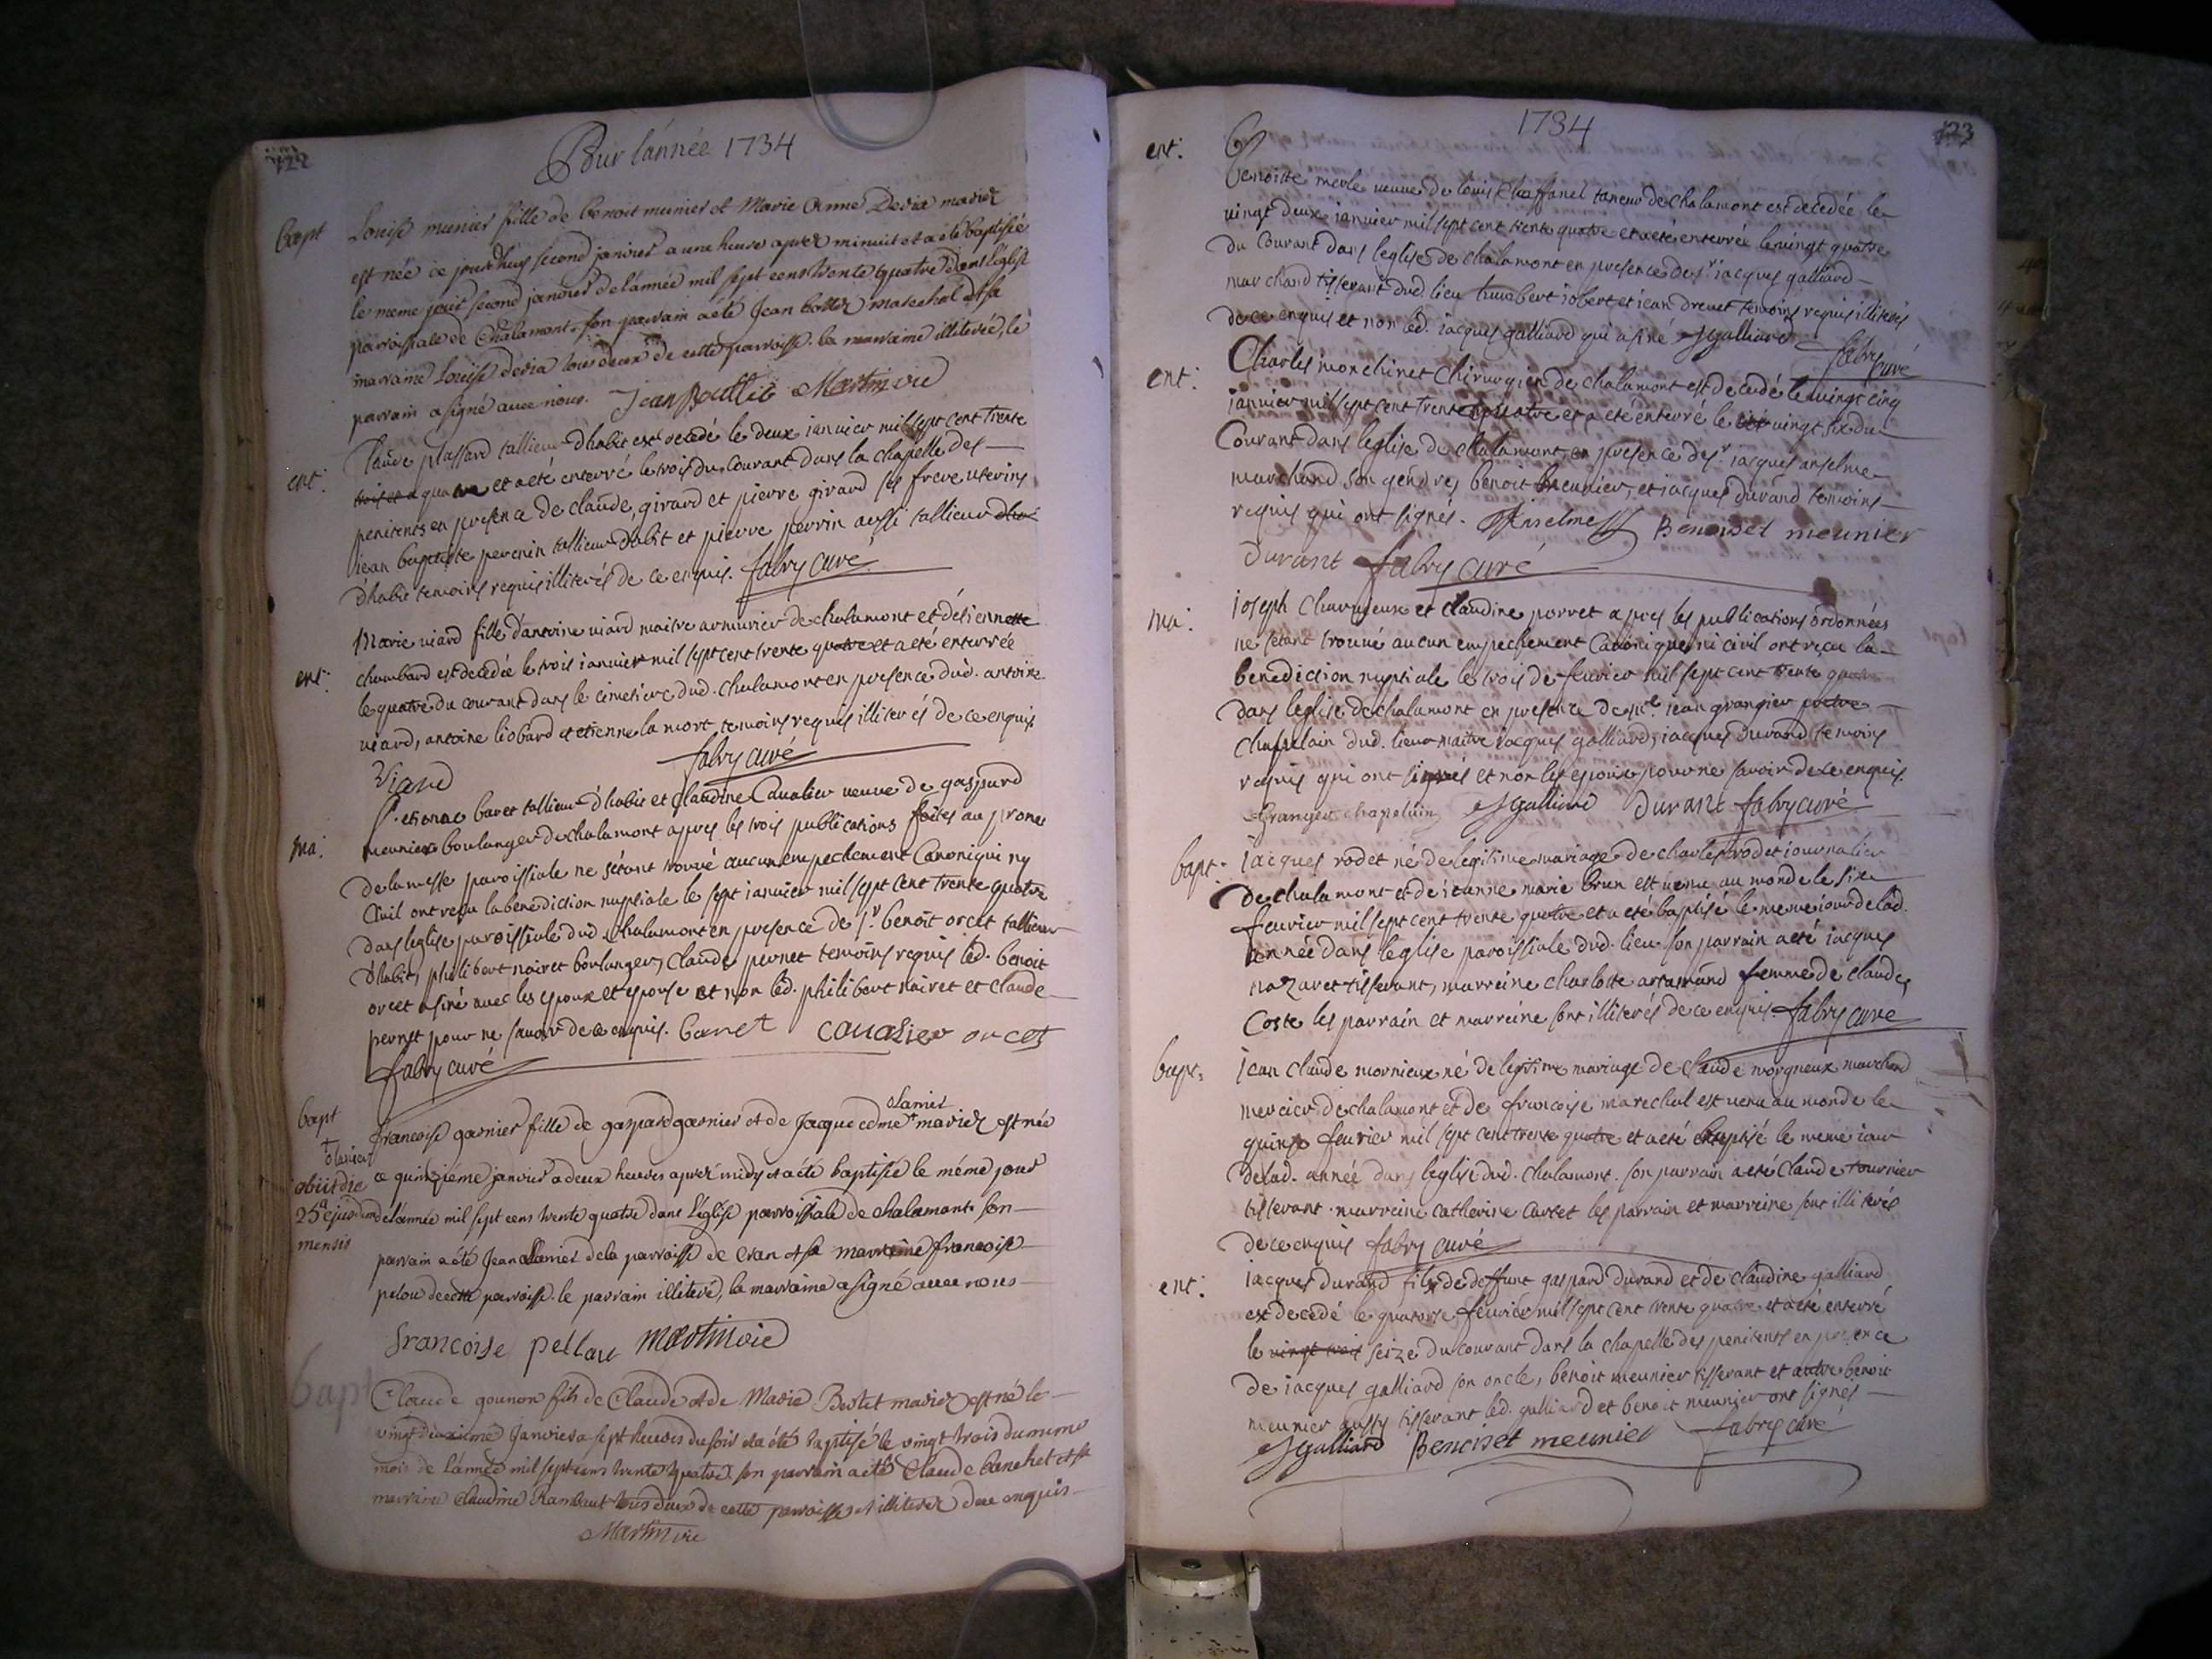 122
Pour l'année 1734
bapt
Louise munier fille de benoit munier et Marie Anne Devia mariez
est née ce jourdhuy second janvier a une heure aprez minuit et a été baptisée
le meme jour second janvier de l'année mil sept cens trente quatre dans l'église
parroissiale de Chalamont. son parrain a été Jean mareschal et sa
marraine Louise devia tous deux de cette parroisse. la marraine illiterée, le
parrain a signé avec nous. Jean Martinoie
ent:
Claude plassard tallieur d'habit est decedé le deux ianvier mil sept cent trente
quatre et a eté enterré le trois du courant dans la chapelle des
penitents en presence de claude, girard et pierre girard ses frere uterins
iean baptiste perrin tallieur d'abit et pierre perrin aussi tallieur
d'habit temoins requis illiterés de ce enquis. fabry curé
ent:
Marie viard fille d'antoine viard maitre armurier de chalamont et d'étiennette
chambard est decedée le trois ianvier mil sept cent trente quatre et a eté enterrée
le quatre du courant dans le cimetiere dud. chalamont en presence dud. antoine
viard, antoine liobard et etienne la mort temoins requis illiterés de ce enquis
Viard fabry curé
ma:
baret tallieur d'habit et Claudine Cavalier veuve de gaspard
meunier boulanger de chalamont apres les trois publications faites au prone
de la messe paroissiale ne s'étant trouvé aucun empechement Canonique ny
Civil ont reçu la benediction nuptiale le sept ianvier mil sept cent trente quatre
dans leglise paroissiale dud. chalamont en presence de sr. benoit orcet tallieur
d'habit, philibert noiret boulanger, Claude pernet temoins requis led. benoit
orcet a siné avec les epoux et epouse et non led. philibert noiret et claude
pernet pour ne savoir de ce enquis. baret cavalier orcet
fabry curé
bapt
obiit die
25a ejusdem
mensis
Francoise garnier fille de gaspard garnier et de Jacquedme + mariez est née
ce quinzieme janvier a deux heures aprez midy et a été baptisée le méme jour
de l'année mil sept cens trente quatre dans l'église parroissiale de chalamont. son
parrain a été Jean de la parroisse de Cran et sa marraine francoise
pelou de cette parroisse. le parrain illiteré, la marraine a signé avec nous
francoise pellou Martinoie
bapt
Claude gounon fils de Claude et de Marie mariez est né le
vingt deuxieme Janvier a sept heures du soir et a été baptisé le vingt trois du meme
mois de l'année mil sept cens trente quatre. son parrain a été Claude banchet et sa
marraine Claudine Rambaut tous deux de cette parroisse et illiterez de ce enquis
Martinoie
123
1734
ent:
benoitte merle veuve de louis Chaffanel taneur de chalamont est decedée le
vingt deux ianvier mil sept cent trente quatre et a eté enterrée le vingt quatre
du courant dans leglise de chalamont en presence de sr iacques galliard
marchand tisserant dud. lieu humbert iobert et iean drevet temoins requis illiterés
de ce enquis et non led. iacques galliard qui a siné J galliard fabry curé
ent:
Charles monchinet Chirurgien de chalamont est decedé le vingt cinq
ianvier mil sept cent trente quatre et a eté enterré le vingt six du
Courant dans leglise de chalamont en presence de sr iacques anselme
marchand son gendre, benoit meunier, et iacques durand temoins
requis qui ont signés. Anselme Benoidet meunier
durant fabry curé
ma:
ioseph Charvieux et claudine porret apres les publications ordonnées
ne s'étant trouvé aucun empechement Canonique ni civil ont reçu la
benediction nuptiale le trois de fevrier mil sept cent trente quatre
dans leglise de chalamont en presence de mre. iean grangier pretre
Chapelain dud. lieu maitre iacques galliard, iacques durand temoins
requis qui ont sinés et non les epoux pour ne savoir de ce enquis.
Granger chapelain J galliard durant fabry curé
bapt:
iacques rodet né de legitime mariage de charles rodet iournalier
de chalamont et de ieanne marie brun est venu au monde le six
fevrier mil sept cent trente quatre et a eté baptisé le meme iour de lad.
année dans leglise paroissiale dud. lieu son parrain a eté iacques
nazaret tisserant, marreine charlotte femme de claude
Coste les parrain et marreine sont illiterés de ce enquis. fabry curé
bapt:
iean claude mornieux né de legitime mariage de claude morgneux marchand
mercier de chalamont et de francoise marechal est venu au monde le
quinze fevrier mil sept cent trente quatre et a eté baptisé le meme iour
de lad. année dans leglise dud. chalamont. son parrain a eté claude tournier
tisserant. marreine catherine cartet les parrain et marreine sont illiterés
de ce enquis fabry curé
ent:
iacques durand fils de deffunt gaspard durand et de claudine galliard
est decedé le quatorse fevrier mil sept cent trente quatre et a eté enterré
le vingt trois seize du courant dans la chapelle des penitents en presence
de iacques galliard son oncle, benoit meunier tisserant et autre benoit
meunier aussy tisserant led. galliard et benoit meunier ont signés
J galliard Benoidet meunier fabry curé